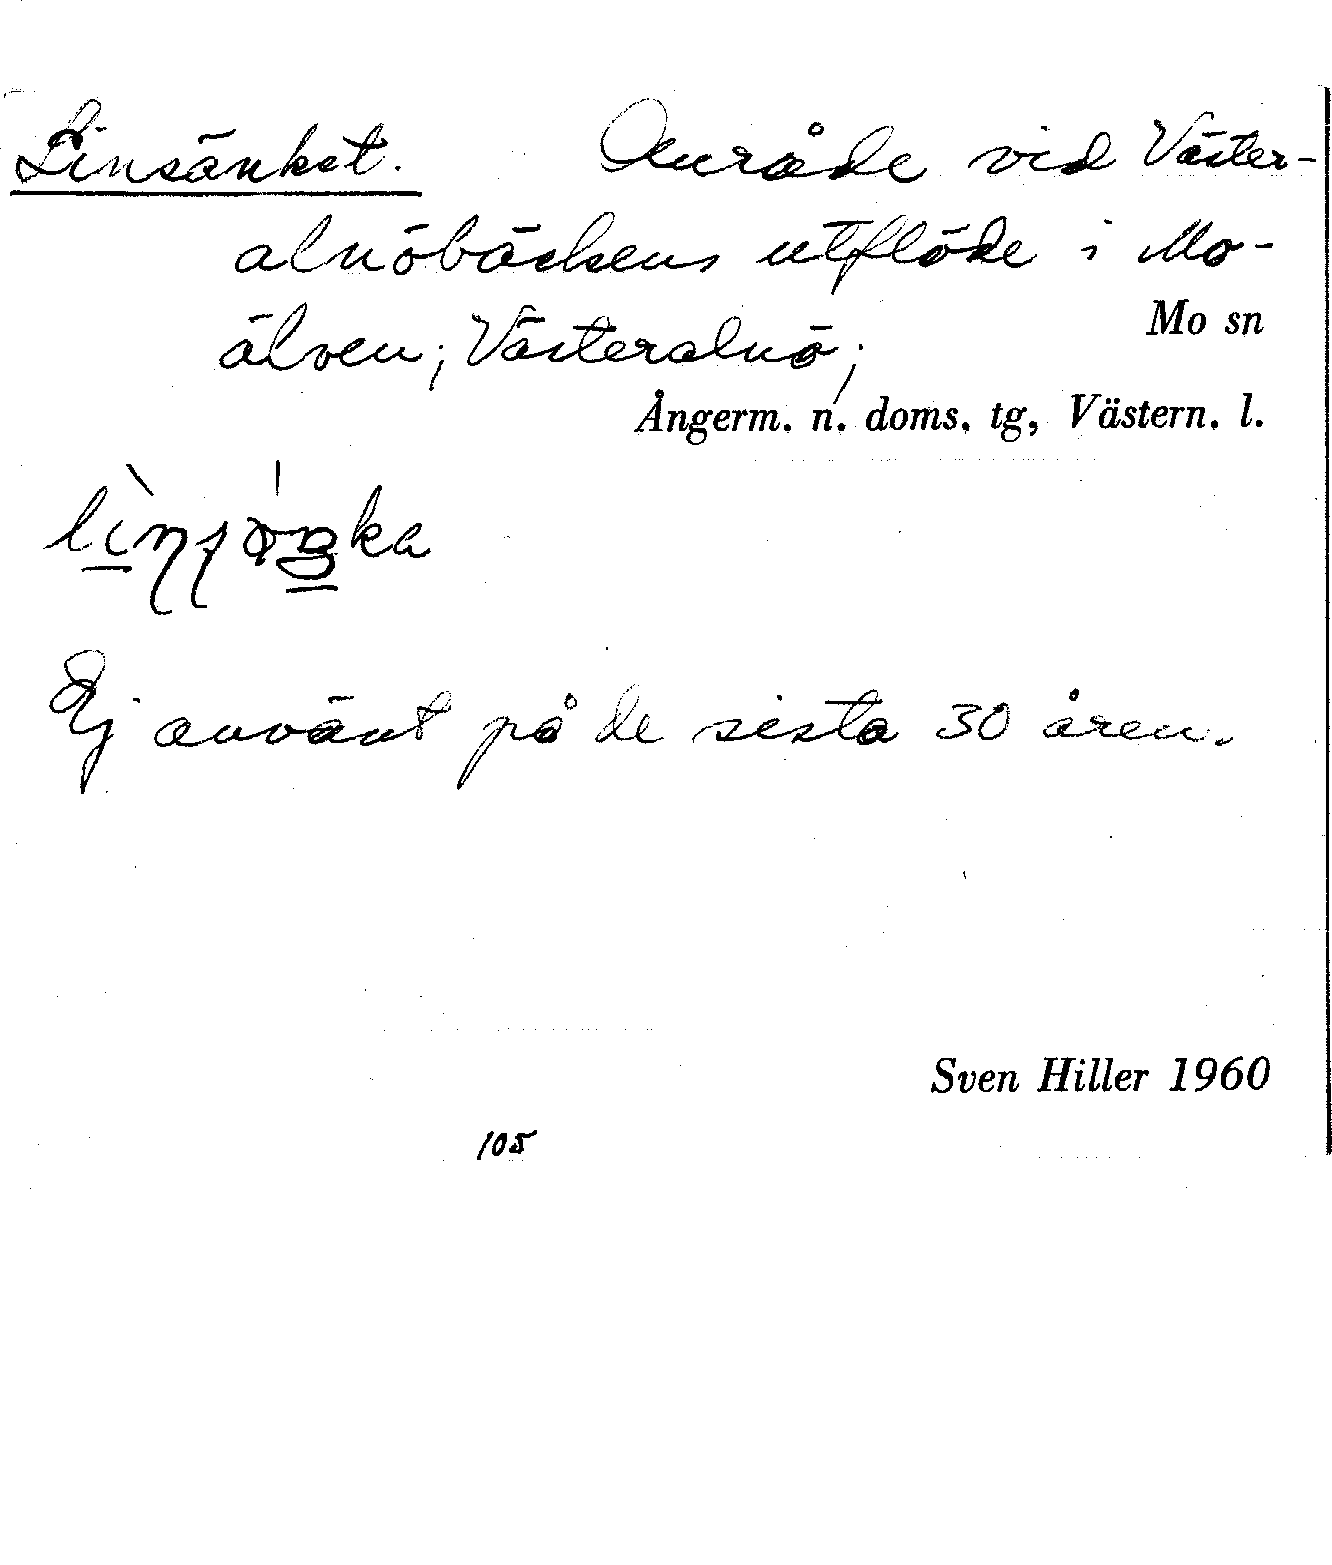 Linsänket. Område vid Väster-
alnöbäckens utflöde i Mo-
älven; Västeralnö;
Mo sn
Ångerm. n. doms. tg, Västern. l.
Ej använt på de sista 30 åren.
Sven Hiller 1960
105